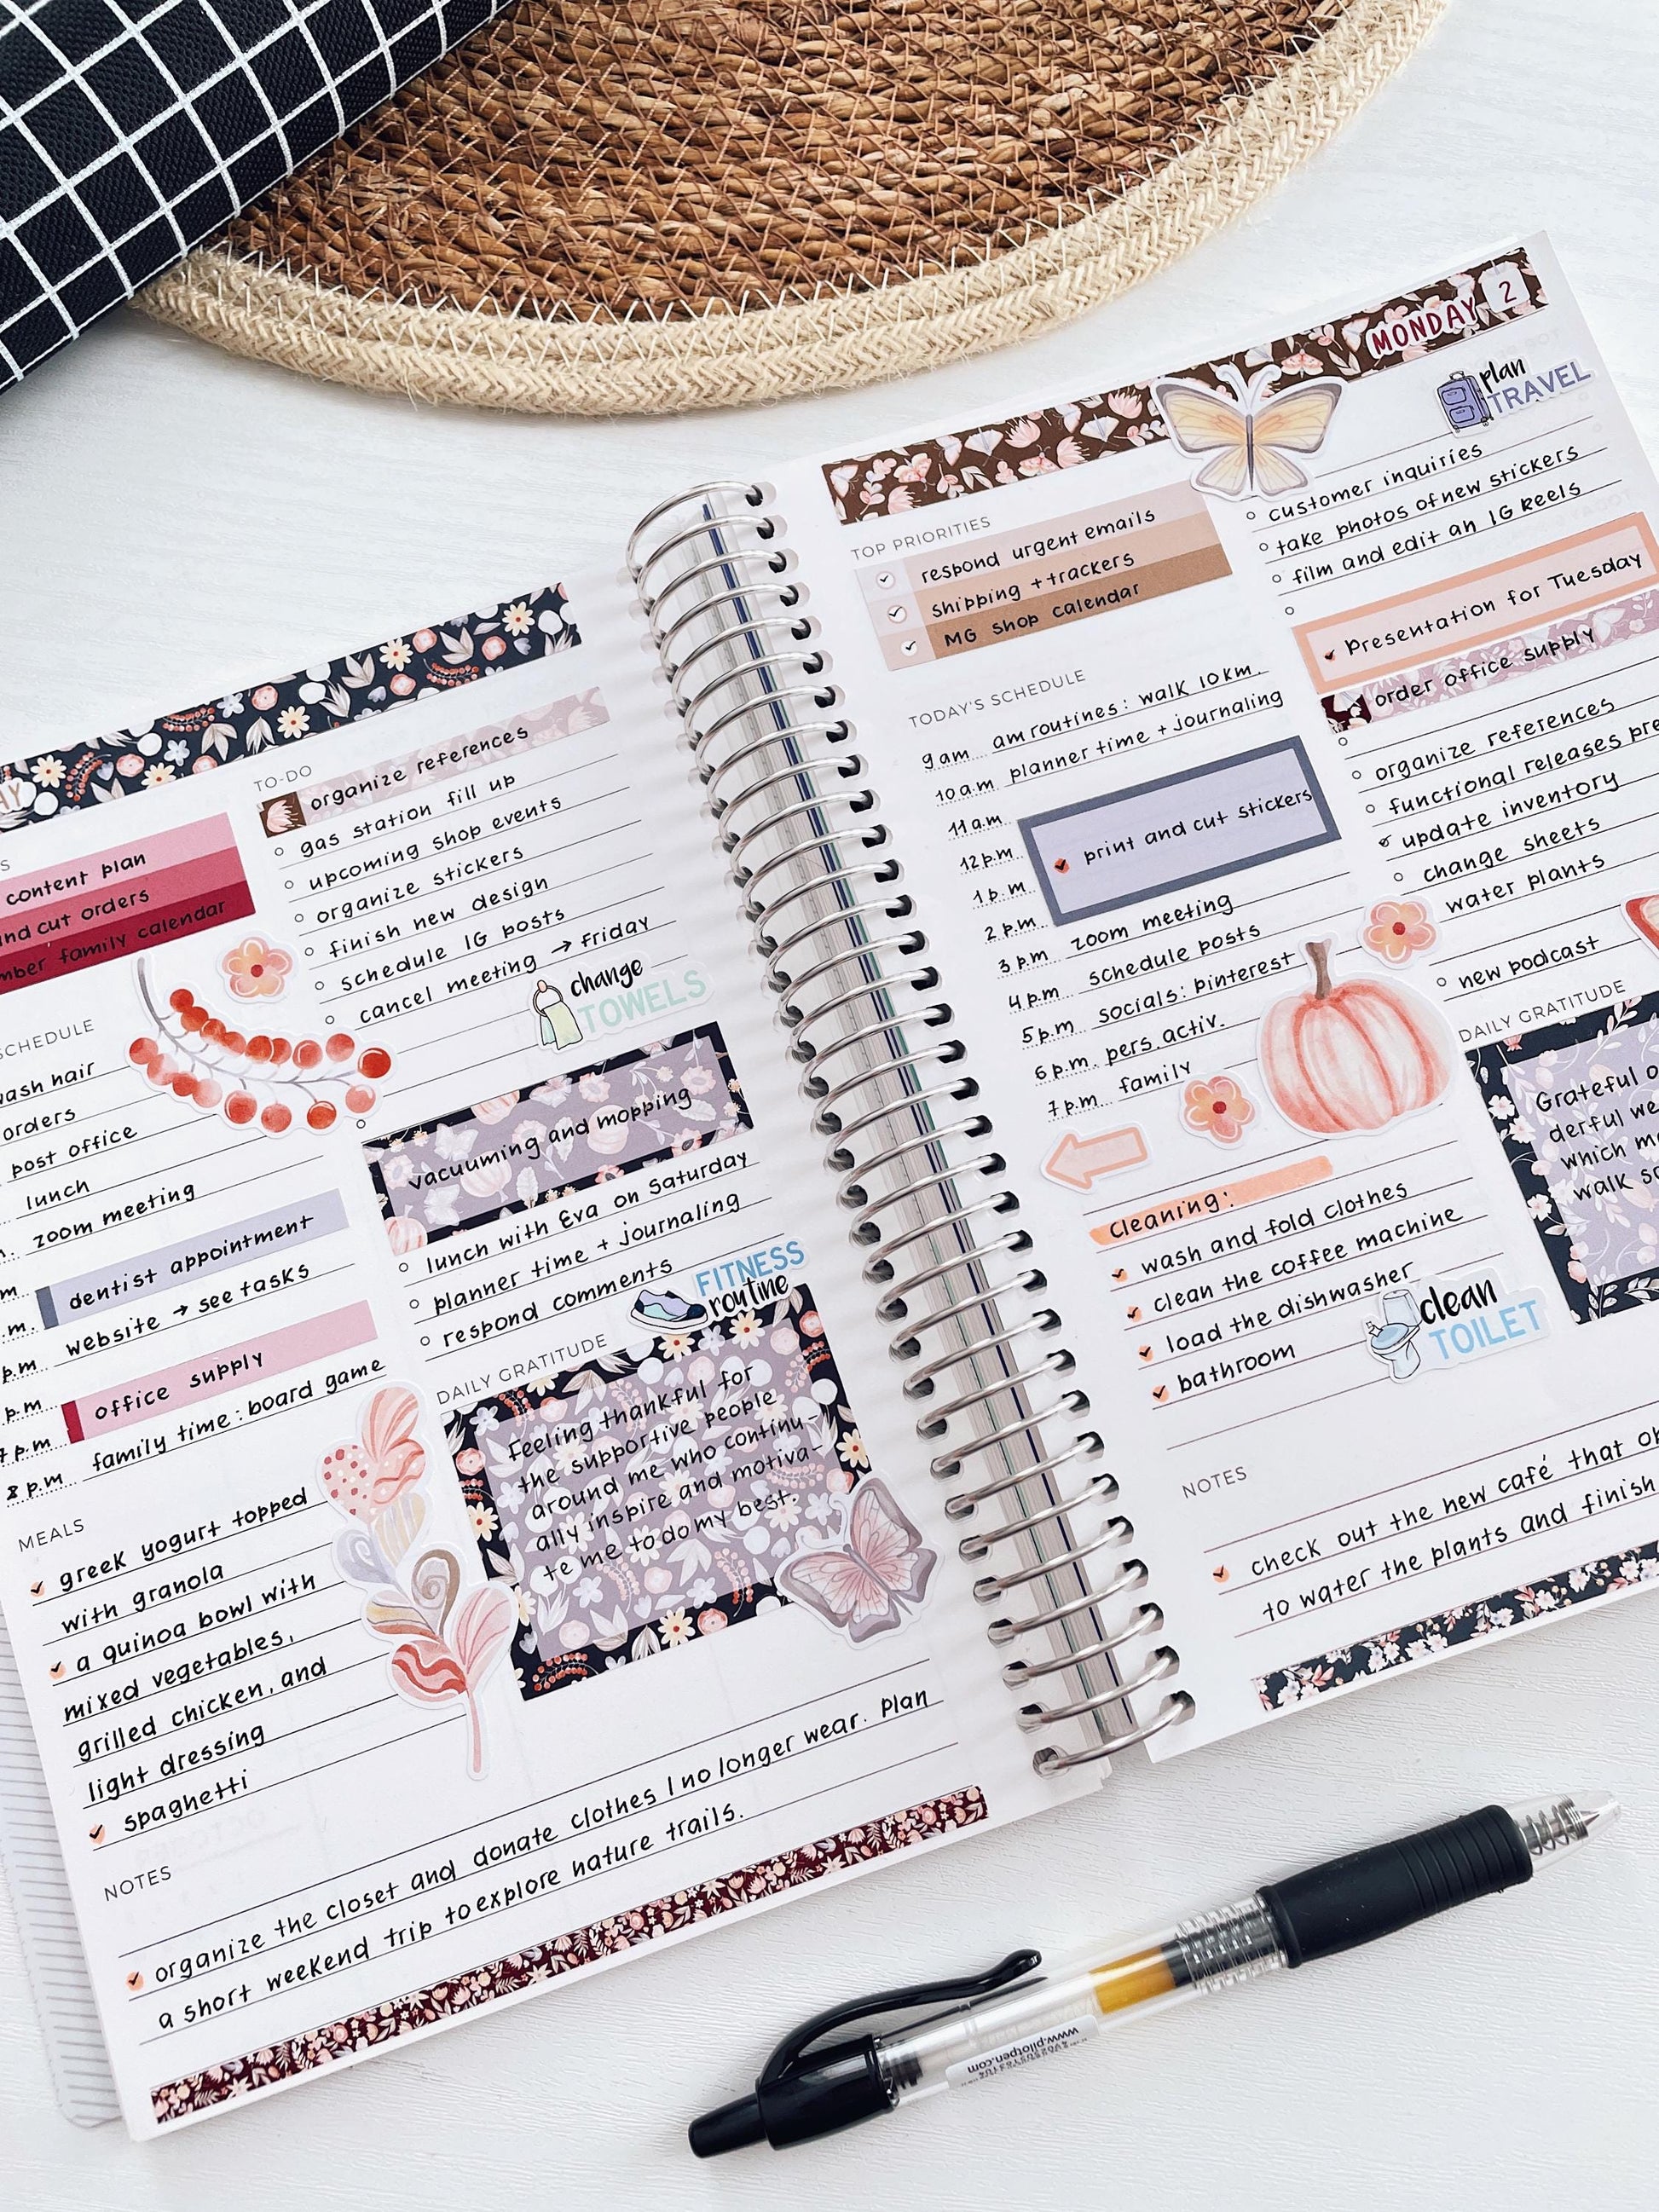 content plan
and cut orders
family calendar
SCHEDULE
wash hair
orders
post office
lunch
zoom meeting
dentist appointment
website → see tasks
pm
office supply
pm
family time: board game
8 p.m
MEALS
greek yogurt topped
with granola
a quinoa bowl with
mixed vegetables,
grilled chicken, and
light dressing
spaghetti
NOTES
organize the closet and donate clothes I no longer wear. plan
a short weekend trip to explore nature trails.
TO-DO
organize references
gas station fill up
upcoming shop events
organize stickers
finish new design
schedule IG posts
cancel meeting → Friday
change
TOWELS
vacuuming and mopping
lunch with Eva on Saturday
planner time + journaling
respond comments
FITNESS
routine
DAILY GRATITUDE
Feeling thankful for
the supportive people
around me who continu-
ally inspire and motiva-
te me to do my best.
MONDAY 2
TOP PRIORITIES
respond urgent emails
shipping + trackers
MG shop calendar
TODAY'S SCHEDULE
9 am am routines: walk 10km.
10 a.m planner time + journaling
11 a.m
12 p.m
print and cut stickers
1 p.m
2 p.m zoom meeting
3 p.m schedule posts
4 p.m socials: pinterest
5 p.m pers. activ.
6 p.m. family
7 p.m
cleaning:
wash and fold clothes
clean the coffee machine
load the dishwasher
bathroom
clean
TOILET
NOTES
check out the new café that
to water the plants and finish
plan
TRAVEL
customer inquiries
take photos of new stickers
film and edit an IG Reels
Presentation for Tuesday
order office supply
organize references
functional releases
update inventory
change sheets
water plants
new podcast
DAILY GRATITUDE
Grateful
derful
which
walk
www.pilotpen.com